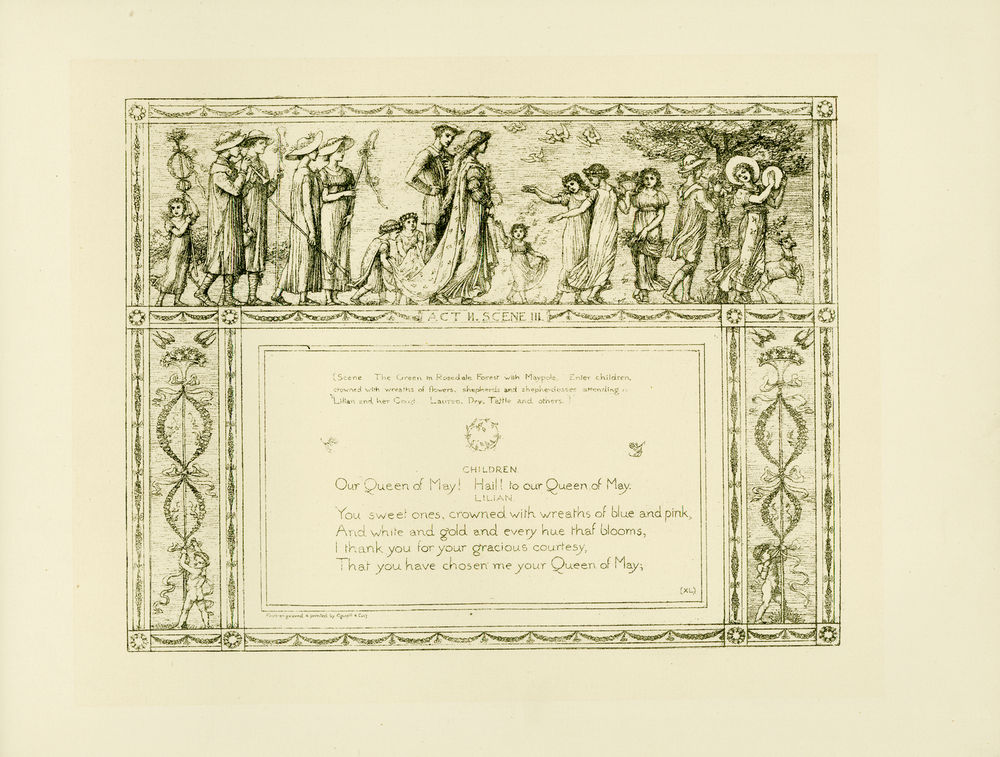 ACT II. SCENE III.
(Scene The Green in Rosedale Forest with Maypole. Enter children,
crowned with wreaths of flowers, shepherds and shepherdesses attending
Lilian and her Guard Lauren, Dry, Tattle and others.)
CHILDREN.
Our Queen of May! Hail! to our Queen of May.
LILIAN.
You sweet ones, crowned with wreaths of blue and pink,
And white and gold and every hue that blooms,
I thank you for your gracious courtesy,
That you have chosen me your Queen of May;
(XL)
engraved & printed by